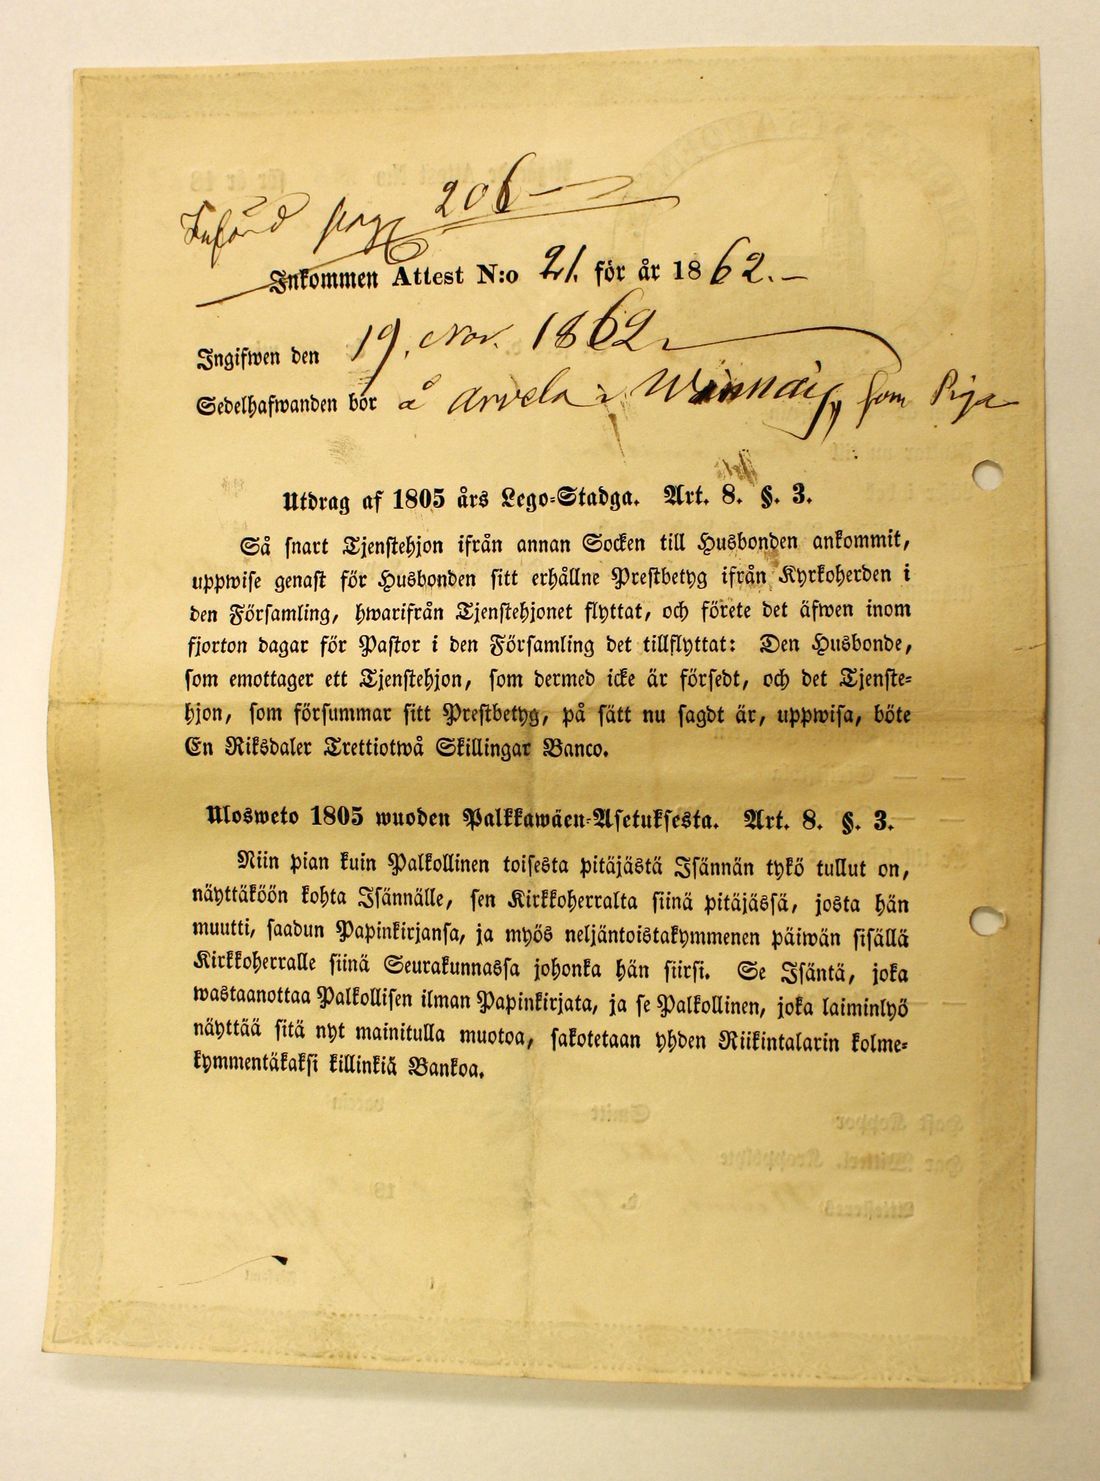 Införd pag 206
Inkommen Attest N:o 21. för år 1862.
Ingifwen den 19. Nov. 1862
Sedelhafwanden bor å Arvela i som Piga
Utdrag af 1805 års Lego-Stadga. Art. 8. §. 3.
Så snart Tjenstehjon ifrån annan Socken till Husbonden ankommit,
uppwise genast för Husbonden sitt erhållne Prestbetyg ifrån Kyrkoherden i
den Församling, hwarifrån Tjenstehjonet flyttat, och förete det äfwen inom
fjorton dagar för Pastor i den Församling det tillflyttat: Den Husbonde,
som emottager ett Tjenstehjon, som dermed icke är försedt, och det Tjenste-
hjon, som försummar sitt Prestbetyg, på sätt nu sagdt är, uppwisa, böte
En Riksdaler Trettiotwå Skillingar Banco.
Ulosweto 1805 wuoden Palkkawäen-Asetuksesta. Art. 8. §. 3.
Niin pian kuin Palkollinen toisesta pitäjästä Isännän tykö tullut on,
näyttäköön kohta Isännälle, sen Kirkkoherralta siinä pitäjässä, josta hän
muutti, saadun Papinkirjansa, ja myös neljäntoistakymmenen päiwän sisällä
Kirkkoherralle siinä Seurakunnassa johonka hän siirsi. Se Isäntä, joka
wastaanottaa Palkollisen ilman Papinkirjata, ja se Palkollinen, joka laiminlyö
näyttää sitä nyt mainitulla muotoa, sakotetaan yhden Riikintalarin kolme-
kymmentäkaksi killinkiä Bankoa.